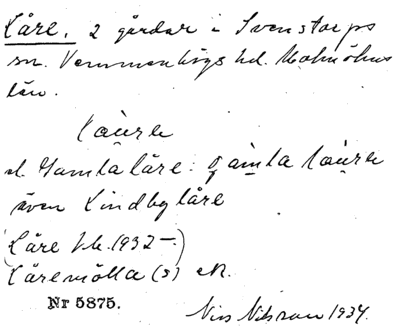 Låre, 2 gårdar i Svenstorps
sn. Vemmenhögs hd. Malmöhus
län.
låùrə
d. Gamla låre: gàmla låùrə
även Lindby låre
(Låre jb. 1932–)
Låremölla (s) ek.
Nr 5875.
Nils Nilsson 1934.